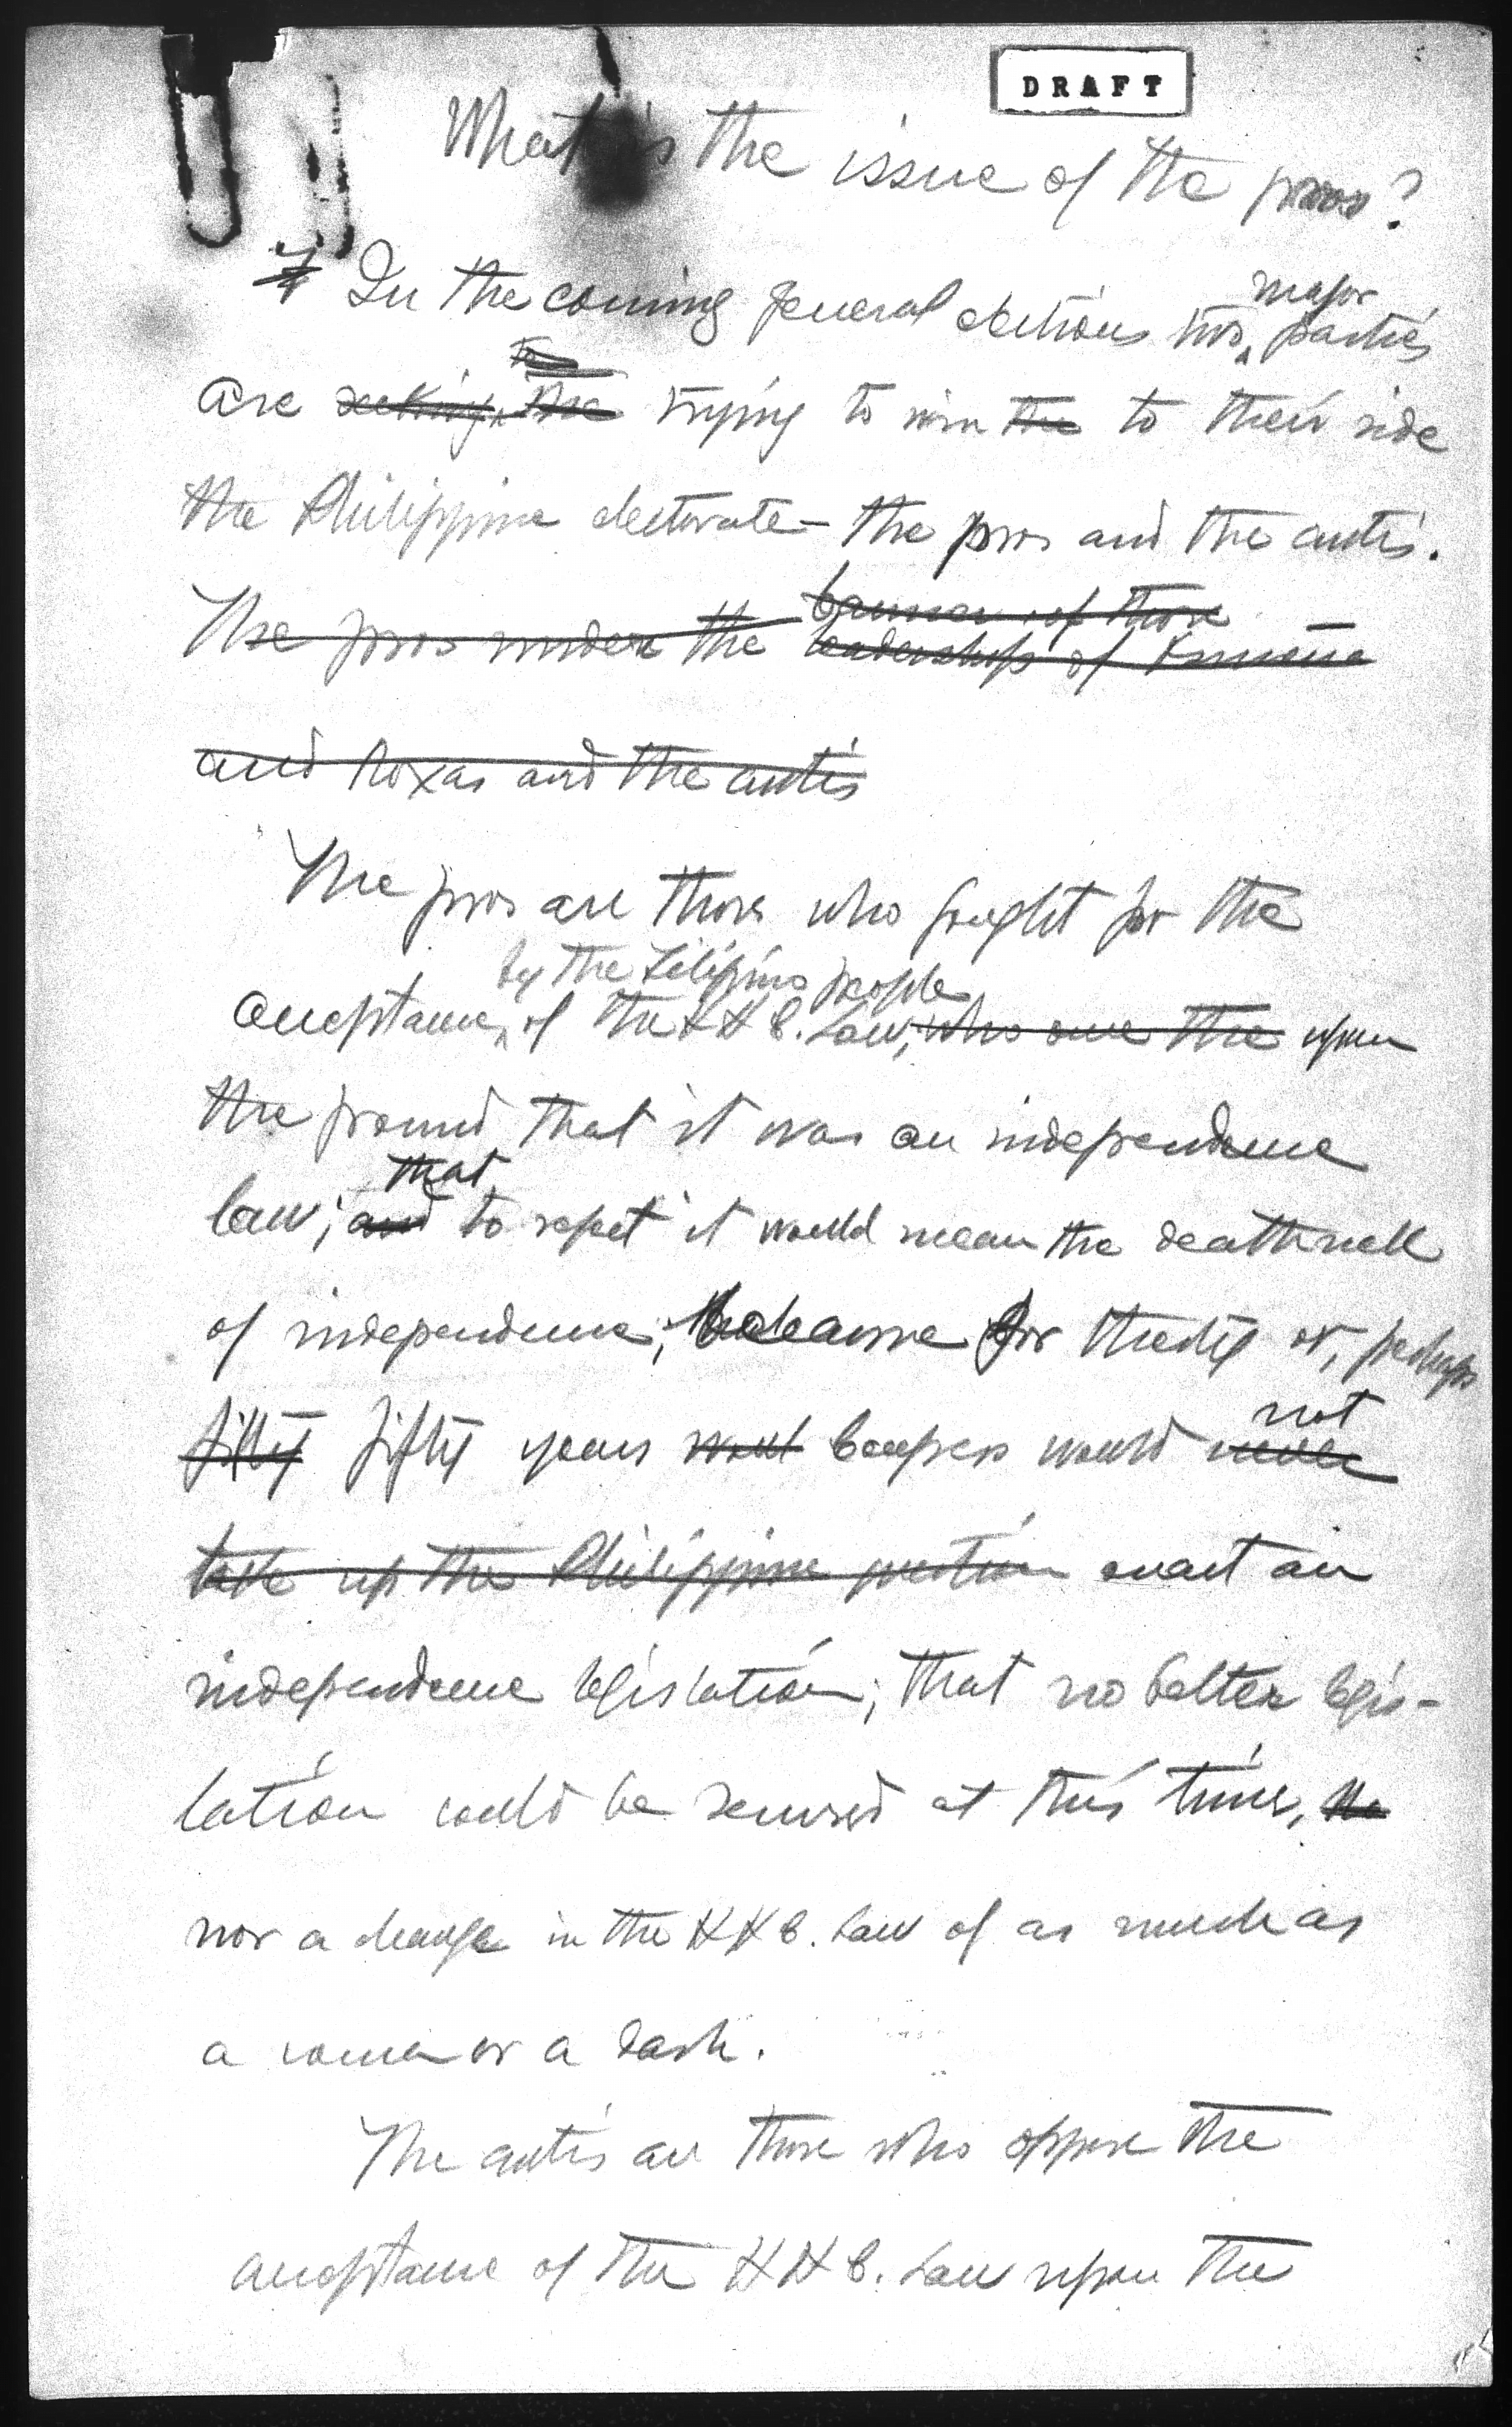 DRAFT
What is the issue of the pros?
In the coming general elections two major parties
are seeking the trying to win the to their side
the Philippine electorate – the pros and the antis.
The pros under the banner of those
leadership of Osmeña
and Roxas and the antis
The pros are those who fought for the
by the Filipino people
acceptance of the H H C. Law, who were the upon
the ground that it was an independence
that
law; and to reject it would mean the deathknell
of independence, because for thirty or, perhaps
not
fifty fifty years would Congress would never
take up the Philippine question enact an
independence legislation; that no better legis-
lation could be secured at this time, no
nor a change in the H H C. Law of as much as
a comma or a dash.
The antis are those who oppose the
acceptance of the H H C. Law upon the